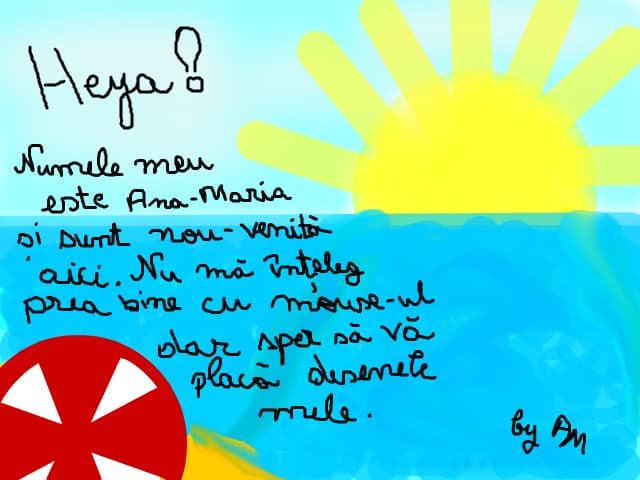 Heya!
Numele meu
este Ana-Maria
și sunt nou-venită
aici. Nu mă înțeleg
prea bine cu mouse-ul
dar sper să vă
placă desenele
mele.
by AM